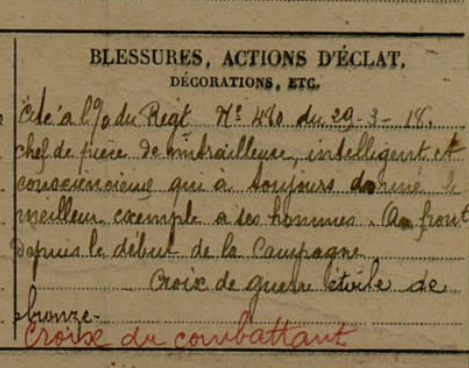 BLESSURES, ACTIONS D'ÉCLAT,
DÉCORATIONS, ETC.
Cité à l'% du Régt N° 480 du 29-3-18.
chef de pièce de mitrailleuse, intelligent et
consciencieux qui à toujours donné le
meilleur exemple a ses hommes. Au front
depuis le début de la Campagne
Croix de guerre étoile de
bronze.
Croix du combattant